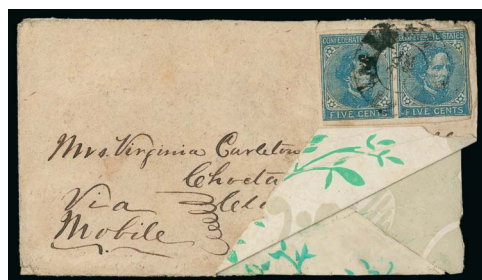 CONFEDERATE STATES
FIVE CENTS FIVE CENTS
Mrs. Virginia Carleton
Chocta
Via
Mobile